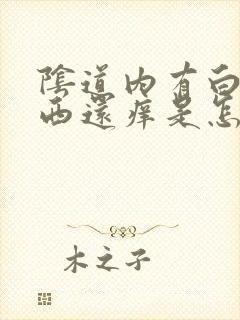 陰道内有白
西還痒是怎
木之子